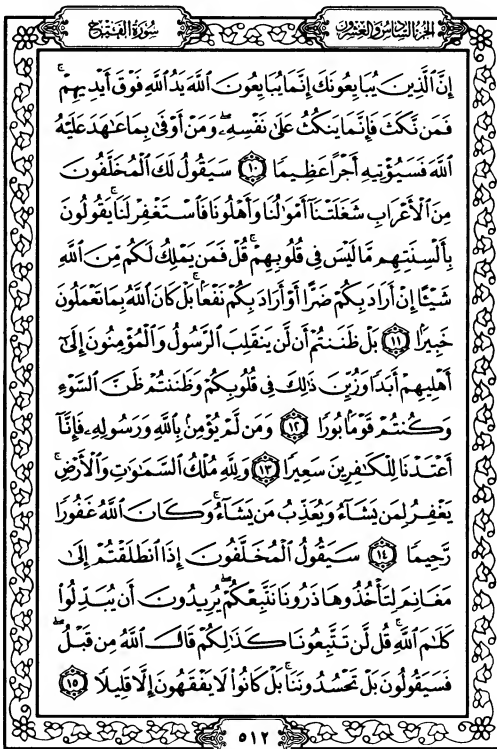 الجزء السادس والعشرون
سورة الفتح
إِنَّ ٱلَّذِينَ يُبَايِعُونَكَ إِنَّمَا يُبَايِعُونَ ٱللَّهَ يَدُ ٱللَّهِ فَوْقَ أَيْدِيهِمْ ۚ
فَمَن نَّكَثَ فَإِنَّمَا يَنكُثُ عَلَىٰ نَفْسِهِۦ ۖ وَمَنْ أَوْفَىٰ بِمَا عَٰهَدَ عَلَيْهُ
ٱللَّهَ فَسَيُؤْتِيهِ أَجْرًا عَظِيمًا ١٠ سَيَقُولُ لَكَ ٱلْمُخَلَّفُونَ
مِنَ ٱلْأَعْرَابِ شَغَلَتْنَآ أَمْوَٰلُنَا وَأَهْلُونَا فَٱسْتَغْفِرْ لَنَا ۚ يَقُولُونَ
بِأَلْسِنَتِهِم مَّا لَيْسَ فِى قُلُوبِهِمْ ۚ قُلْ فَمَن يَمْلِكُ لَكُم مِّنَ ٱللَّهِ
شَيْـًٔا إِنْ أَرَادَ بِكُمْ ضَرًّا أَوْ أَرَادَ بِكُمْ نَفْعًۢا ۚ بَلْ كَانَ ٱللَّهُ بِمَا تَعْمَلُونَ
خَبِيرًۢا ١١ بَلْ ظَنَنتُمْ أَن لَّن يَنقَلِبَ ٱلرَّسُولُ وَٱلْمُؤْمِنُونَ إِلَىٰٓ
أَهْلِيهِمْ أَبَدًا وَزُيِّنَ ذَٰلِكَ فِى قُلُوبِكُمْ وَظَنَنتُمْ ظَنَّ ٱلسَّوْءِ
وَكُنتُمْ قَوْمًۢا بُورًا ١٢ وَمَن لَّمْ يُؤْمِنۢ بِٱللَّهِ وَرَسُولِهِۦ فَإِنَّآ
أَعْتَدْنَا لِلْكَٰفِرِينَ سَعِيرًا ١٣ وَلِلَّهِ مُلْكُ ٱلسَّمَٰوَٰتِ وَٱلْأَرْضِ ۚ
يَغْفِرُ لِمَن يَشَآءُ وَيُعَذِّبُ مَن يَشَآءُ ۚ وَكَانَ ٱللَّهُ غَفُورًا
رَّحِيمًا ١٤ سَيَقُولُ ٱلْمُخَلَّفُونَ إِذَا ٱنطَلَقْتُمْ إِلَىٰ
مَغَانِمَ لِتَأْخُذُوهَا ذَرُونَا نَتَّبِعْكُمْ ۖ يُرِيدُونَ أَن يُبَدِّلُوا۟
كَلَٰمَ ٱللَّهِ ۚ قُل لَّن تَتَّبِعُونَا كَذَٰلِكُمْ قَالَ ٱللَّهُ مِن قَبْلُ ۖ
فَسَيَقُولُونَ بَلْ تَحْسُدُونَنَا ۚ بَلْ كَانُوا۟ لَا يَفْقَهُونَ إِلَّا قَلِيلًا ١٥
٥١٢